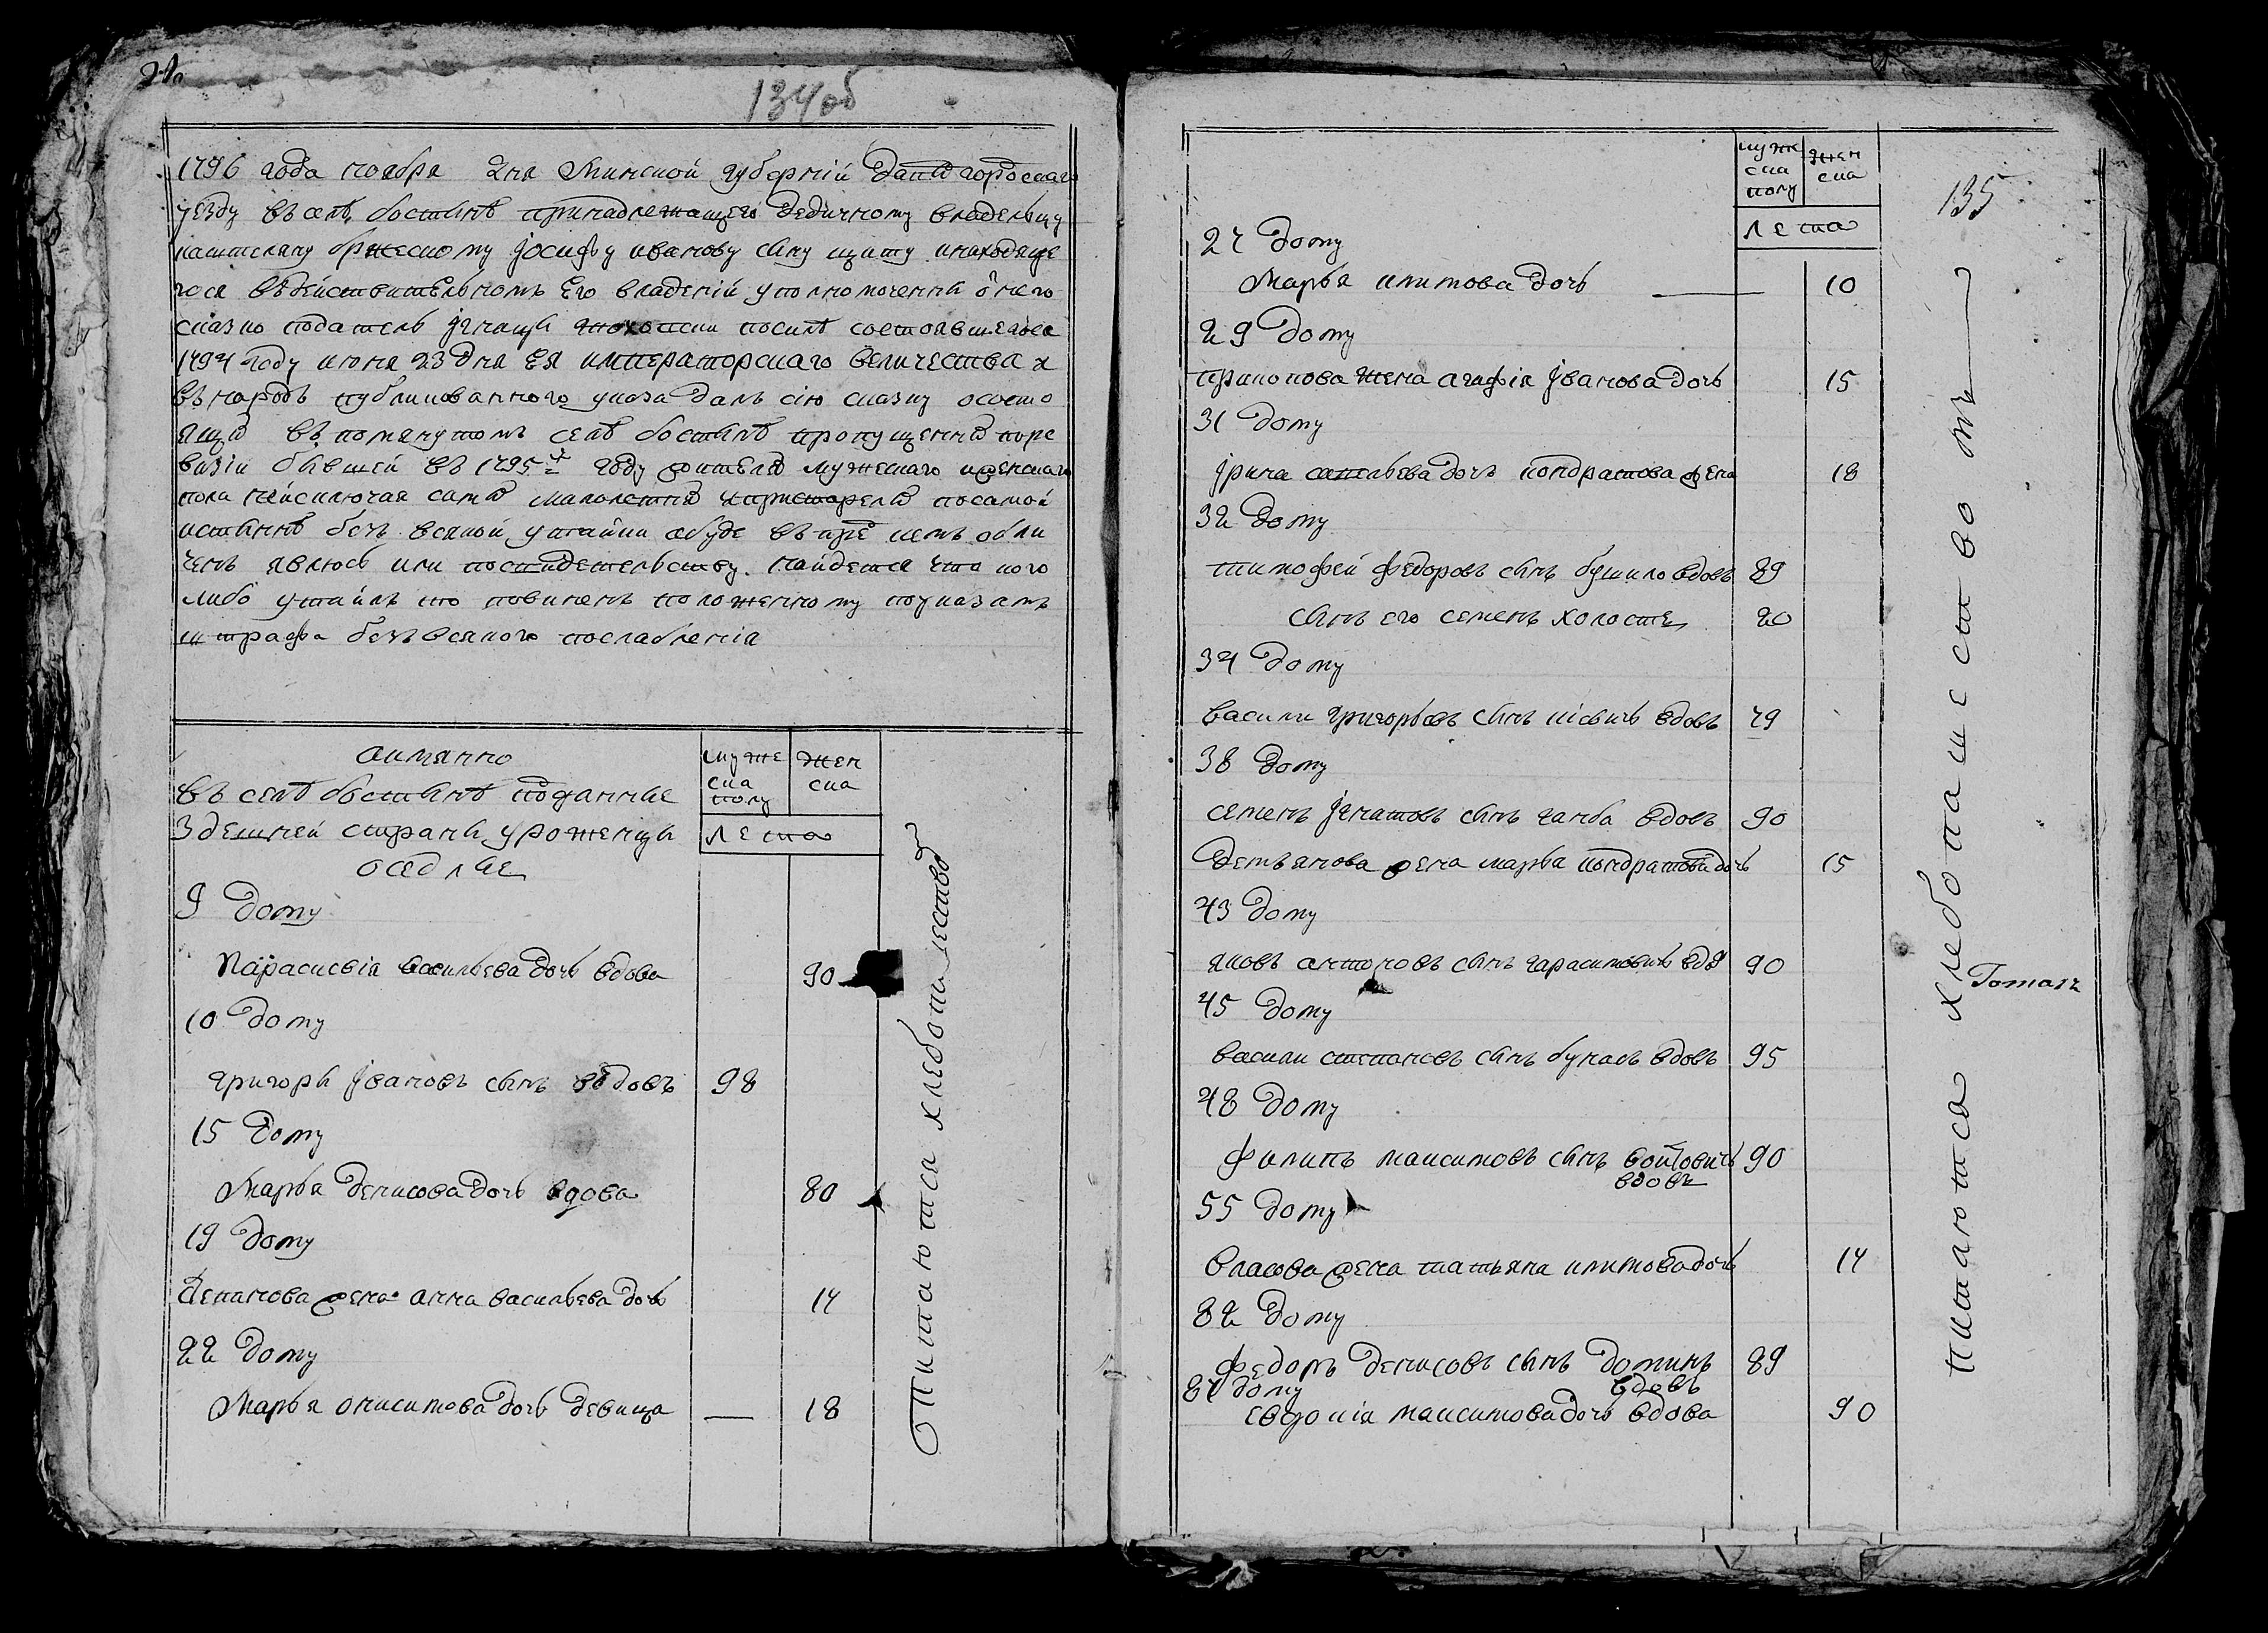 134об
1796 года ноября дня Минской губерній Давидгородскаго
уезду въ селѣ бостынѣ принадлежащего дедичному владельцу
каштеляну бржескому Јосифу иванову сыну щиту инаходяще
гося въдействительномъ его владеній уполномоченны онего
сказко податель Јгнацы посилѣ состоявшегося
1794 году июня 23 дня ея императорскаго величества и
въ народъ публикованного указа далъ сію сказку ососто
ящихъ въ помянутомъ селѣ бостынѣ пропущенныхъ поре
визіи бывшей въ 1795м году жителяхъ мужескаго иженскаго
пола неисключая самыхъ малолетныхъ ипрестарелыхъ посамой
истиннѣ безъ всякой утайки абуде въ пре кемъ обли
ченъ явлюсь или посвидетельству найдется что кого
либо утаилъ то повиненъ положенному поуказамъ
штрафа безъ всякого послабленія
аимянно
въ селѣ бостынѣ подданные
здешней страны уроженцы
оседлые
муже
ска
полу
жен
ска
лета
9 дому
Парасковія васильева дочь вдова 90
10 дому
григоры Јвановъ сынъ вдовъ 98
15 дому
Марья денисова дочь вдова 80
19 дому
жена анна васильева дочь 14
22 дому
Марья онисимова дочь девица — 18
Питаются хлебопашествомъ
135
муже
ска
полу
жен
ска
лета
24 дому
Марья климова дочь — 10
29 дому
прокопова жена агафія Јванова дочь 15
31 дому
Јрина савельева дочь кондратова жена 18
32 дому
тимофей федоровъ сынъ бушило вдовъ 89
сынъ его семенъ холостъ 20
34 дому
васили григорьевъ сынъ вдовъ 79
38 дому
семенъ Јгнатовъ сынъ ганба вдовъ 90
демьянова жена марья кондратова дочь 15
43 дому
яковъ антоновъ сынъ гарасимовичъ вдов 90
45 дому
васили степановъ сынъ букасъ вдовъ 95
48 дому
филипъ максимовъ сынъ войтовичъ 90
вдовъ
55 дому
власова жена татьяна климова дочь 14
82 дому
федоръ денисовъ сынъ доминъ 89
вдовъ
84 дому
евдокія максимова дочь вдова 90
питаются хлебопашествомъ
Tomasz